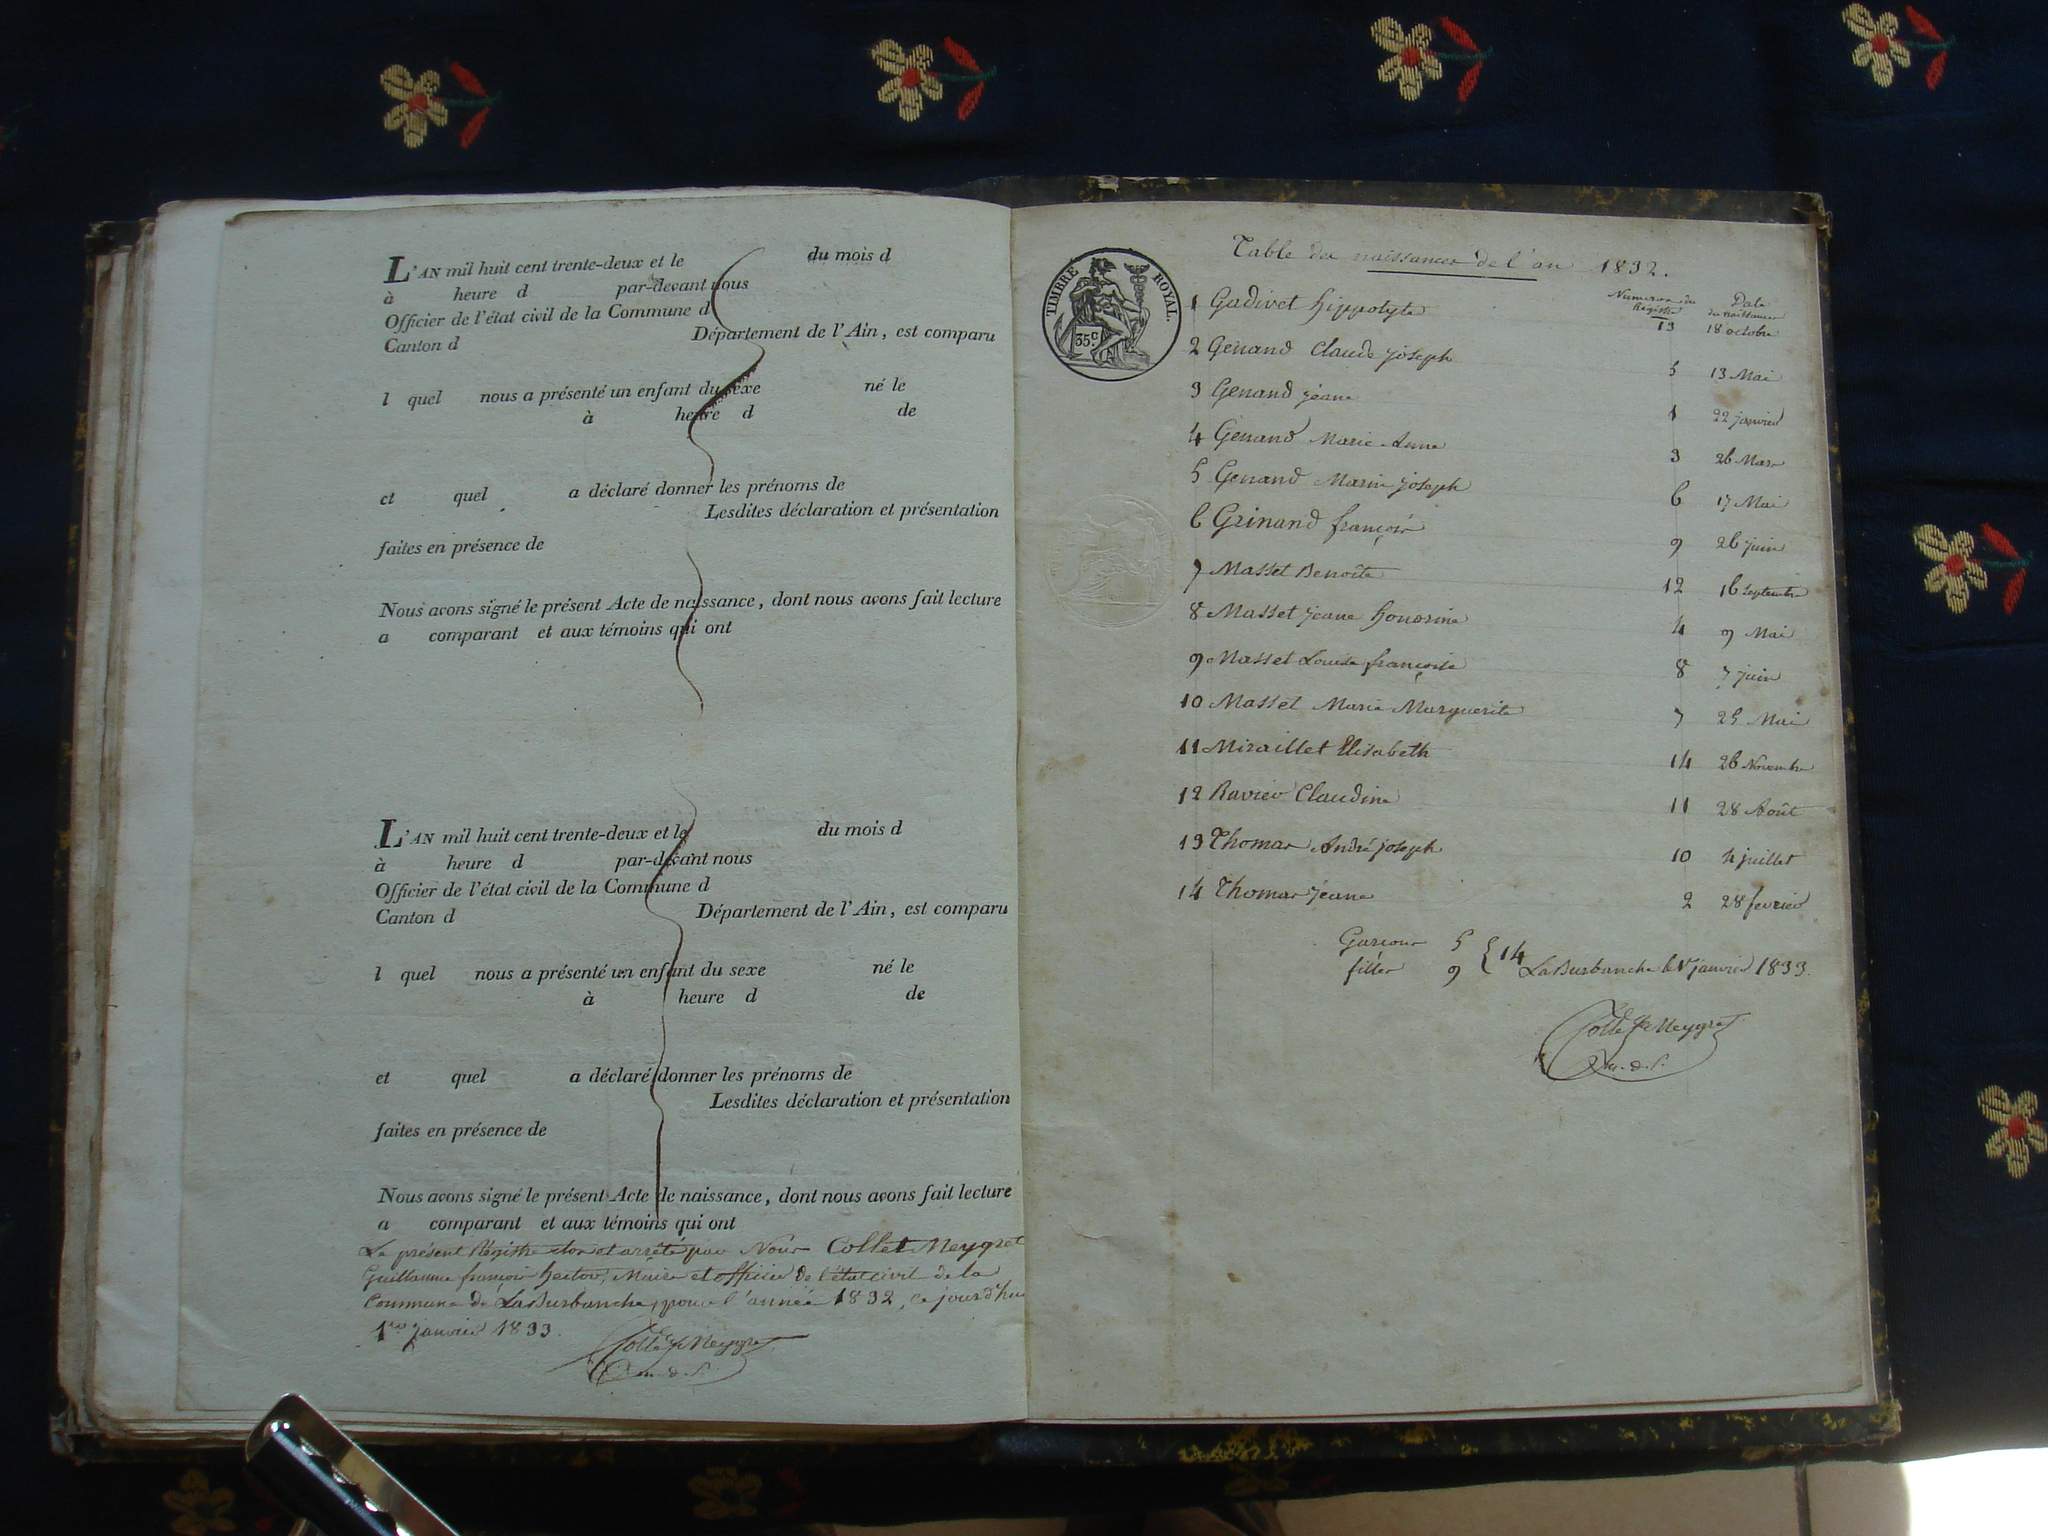 L'AN mil huit cent trente-deux et le du mois d
à heure d par-devant nous
Officier de l'état civil de la Commune d
Canton d Département de l'Ain, est comparu
l quel nous a présenté un enfant du sexe né le
à heure d de
et quel a déclaré donner les prénoms de
Lesdites déclaration et présentation
faites en présence de
Nous avons signé le présent Acte de naissance, dont nous avons fait lecture
a comparant et aux témoins qui ont
L'AN mil huit cent trente-deux et le du mois d
à heure d par-devant nous
Officier de l'état civil de la Commune d
Canton d Département de l'Ain, est comparu
l quel nous a présenté un enfant du sexe né le
à heure d de
et quel a déclaré donner les prénoms de
Lesdites déclaration et présentation
faites en présence de
Nous avons signé le présent Acte de naissance, dont nous avons fait lecture
a comparant et aux témoins qui ont
Le présent Régistre clos et arrêté par Nous Collet Meygret
Guillaume françois hector, Maire et officier de l'état civil de la
Commune de LaBurbanche, pour l'année 1832, ce jourd'hui
1er janvier 1833.
Collet Meygret
TIMBRE ROYAL.
35 c.
Table des naissances de l'an 1832.
Numeros du Régistre Date des naissances
1 Gadivet hippolyte 13 18 octobre
2 Genand Claude joseph 5 13 Mai
3 Genand jeane 1 22 janvier
4 Genand Marie Anne 3 26 Mars
5 Genand Marin joseph 6 17 Mai
6 Grinand françois 9 26 juin
7 Masset Benoîte 12 16 septembre
8 Masset jeane honorine 4 9 Mai
9 Masset Louise françoise 8 7 juin
10 Masset Marie Marguerite 7 25 Mai
11 Miraillet Elisabeth 14 26 Novembre
12 Ravier Claudine 11 28 Août
13 Thomas André joseph 10 4 juillet
14 Thomas jeane 2 28 fevrier
Garcons 5 } 14
filles 9 LaBurbanche le 1er janvier 1833.
Collet Meygret